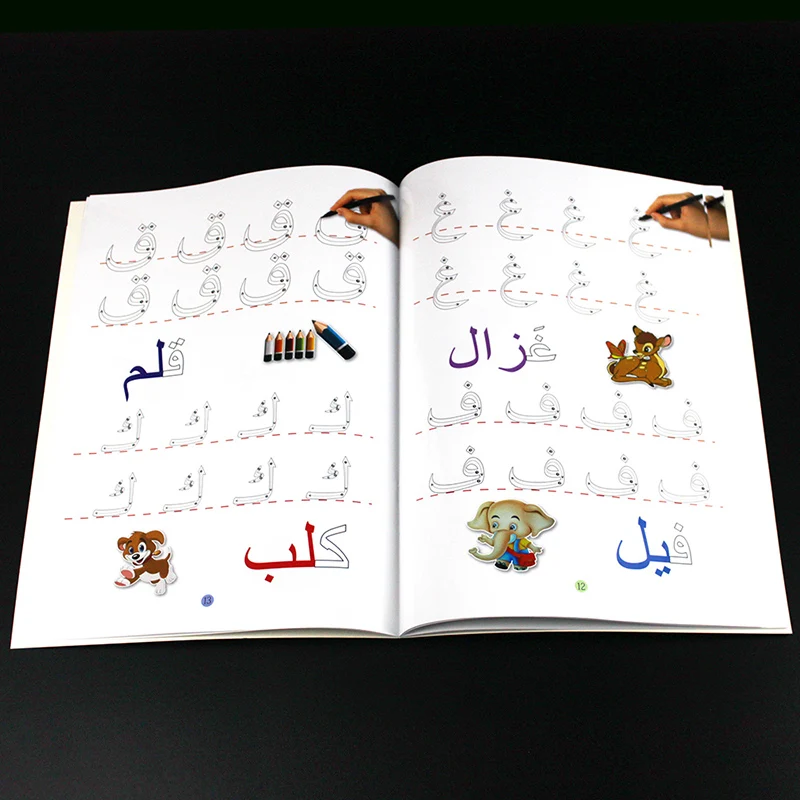 غ غ غ غ
غ غ غ غ
غَزال
ف ف ف ف
ف ف ف ف
فيل
12
ق ق ق ق
ق ق ق ق
قلم
ك ك ك ك
ك ك ك ك
كلب
13